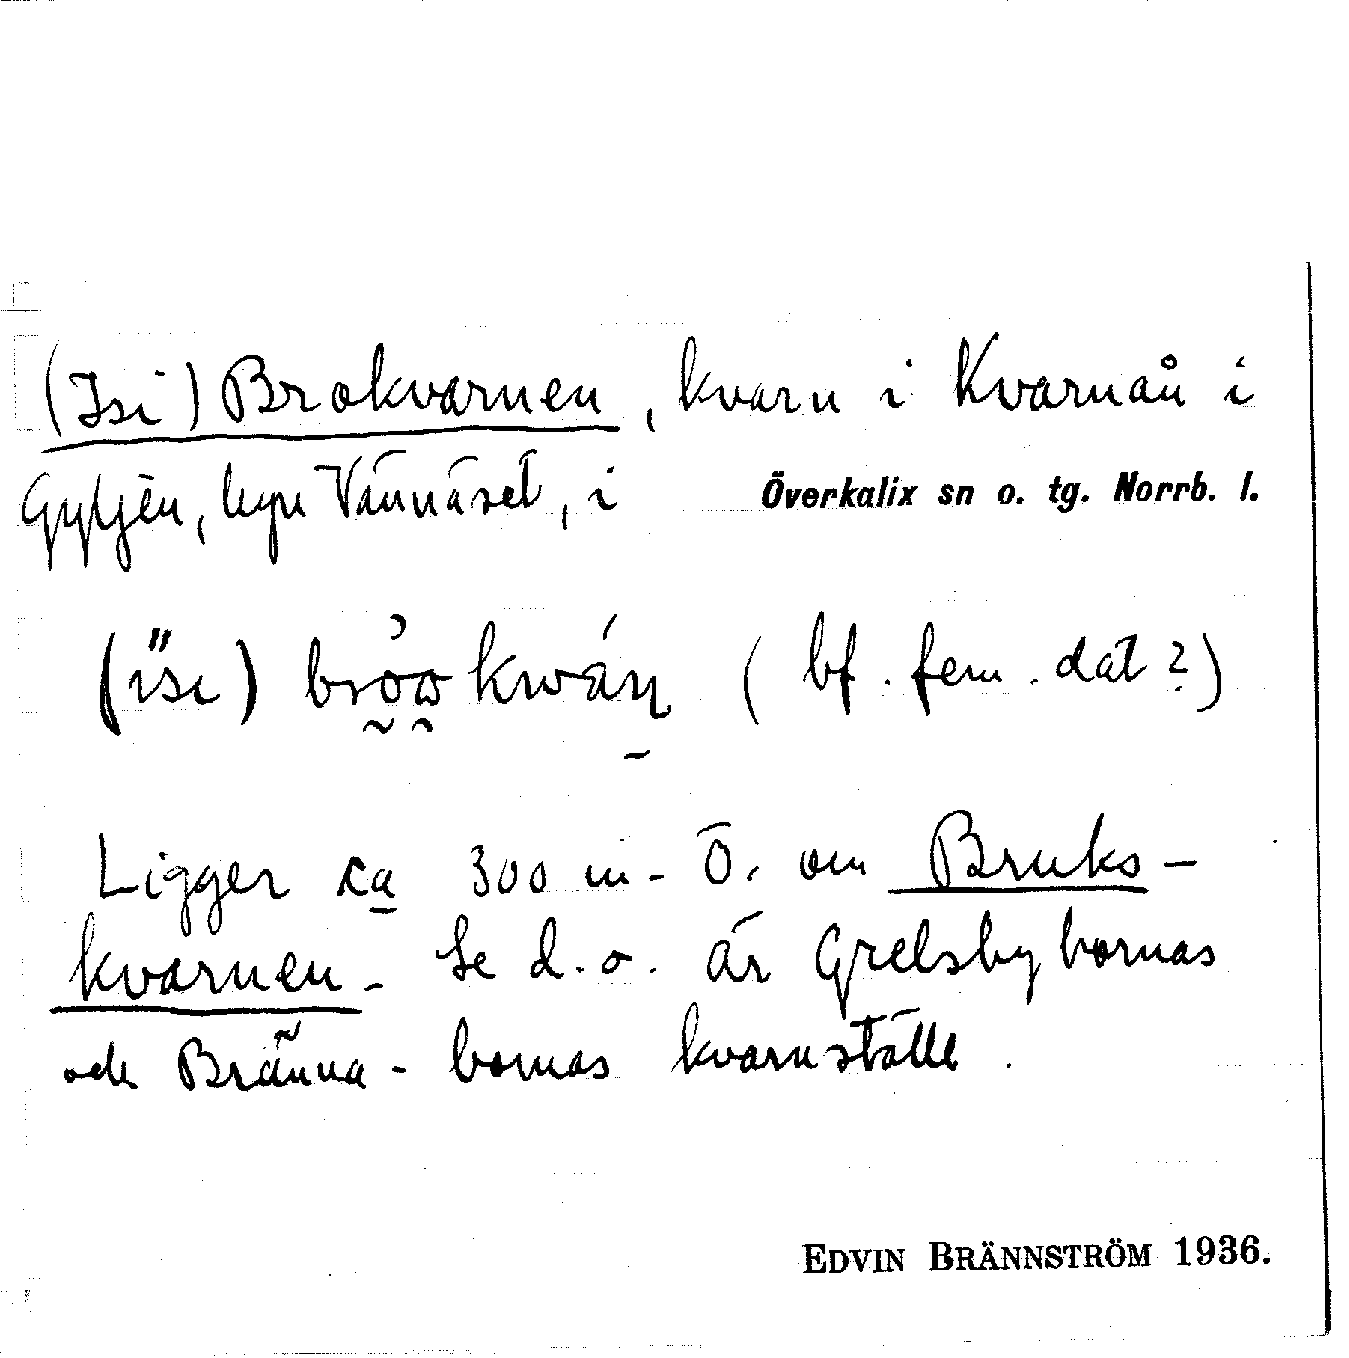 (Isi) Brokvarnen, kvarn i Kvarnån i
Gyljen, byn Vännäset, i Överkalix sn o. tg. Norrb. l.
(isi) bròokwán (bf. fem. dat?)
Ligger ca 300 m. Ö. om Bruks-
kvarnen. Se d. o. Är Grelsbybornas
och Bränna-bornas kvarnställe.
EDVIN BRÄNNSTRÖM 1936.